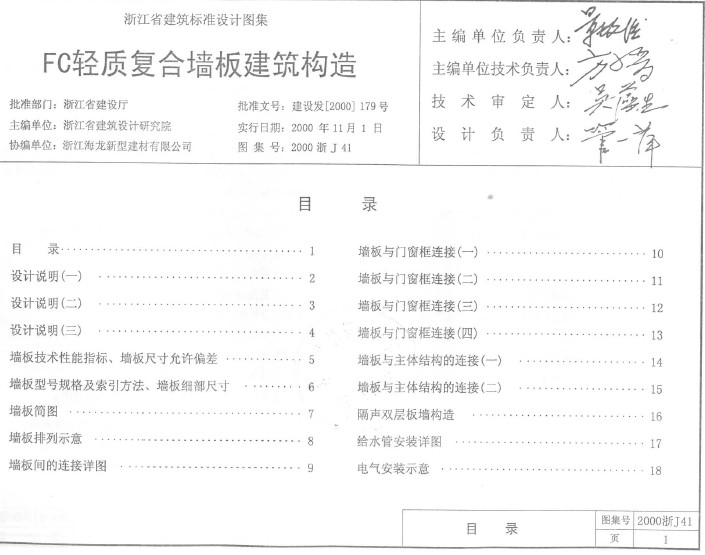 浙江省建筑标准设计图集
FC轻质复合墙板建筑构造
批准部门：浙江省建设厅
批准文号：建设发[2000]179号
主编单位：浙江省建筑设计研究院
实行日期：2000 年11月1 日
协编单位：浙江海龙新型建材有限公司
图 集 号：2000浙J41
主编单位负责人：
主编单位技术负责人：
技 术 审 定 人：
设 计 负 责 人：
目 录
目 录 1
设计说明(一) 2
设计说明(二) 3
设计说明(三) 4
墙板技术性能指标、墙板尺寸允许偏差 5
墙板型号规格及索引方法、墙板细部尺寸 6
墙板简图 7
墙板排列示意 8
墙板间的连接详图 9
墙板与门窗框连接(一) 10
墙板与门窗框连接(二) 11
墙板与门窗框连接(三) 12
墙板与门窗框连接(四) 13
墙板与主体结构的连接(一) 14
墙板与主体结构的连接(二) 15
隔声双层板墙构造 16
给水管安装详图 17
电气安装示意 18
目 录
图集号 2000浙J41
页 1